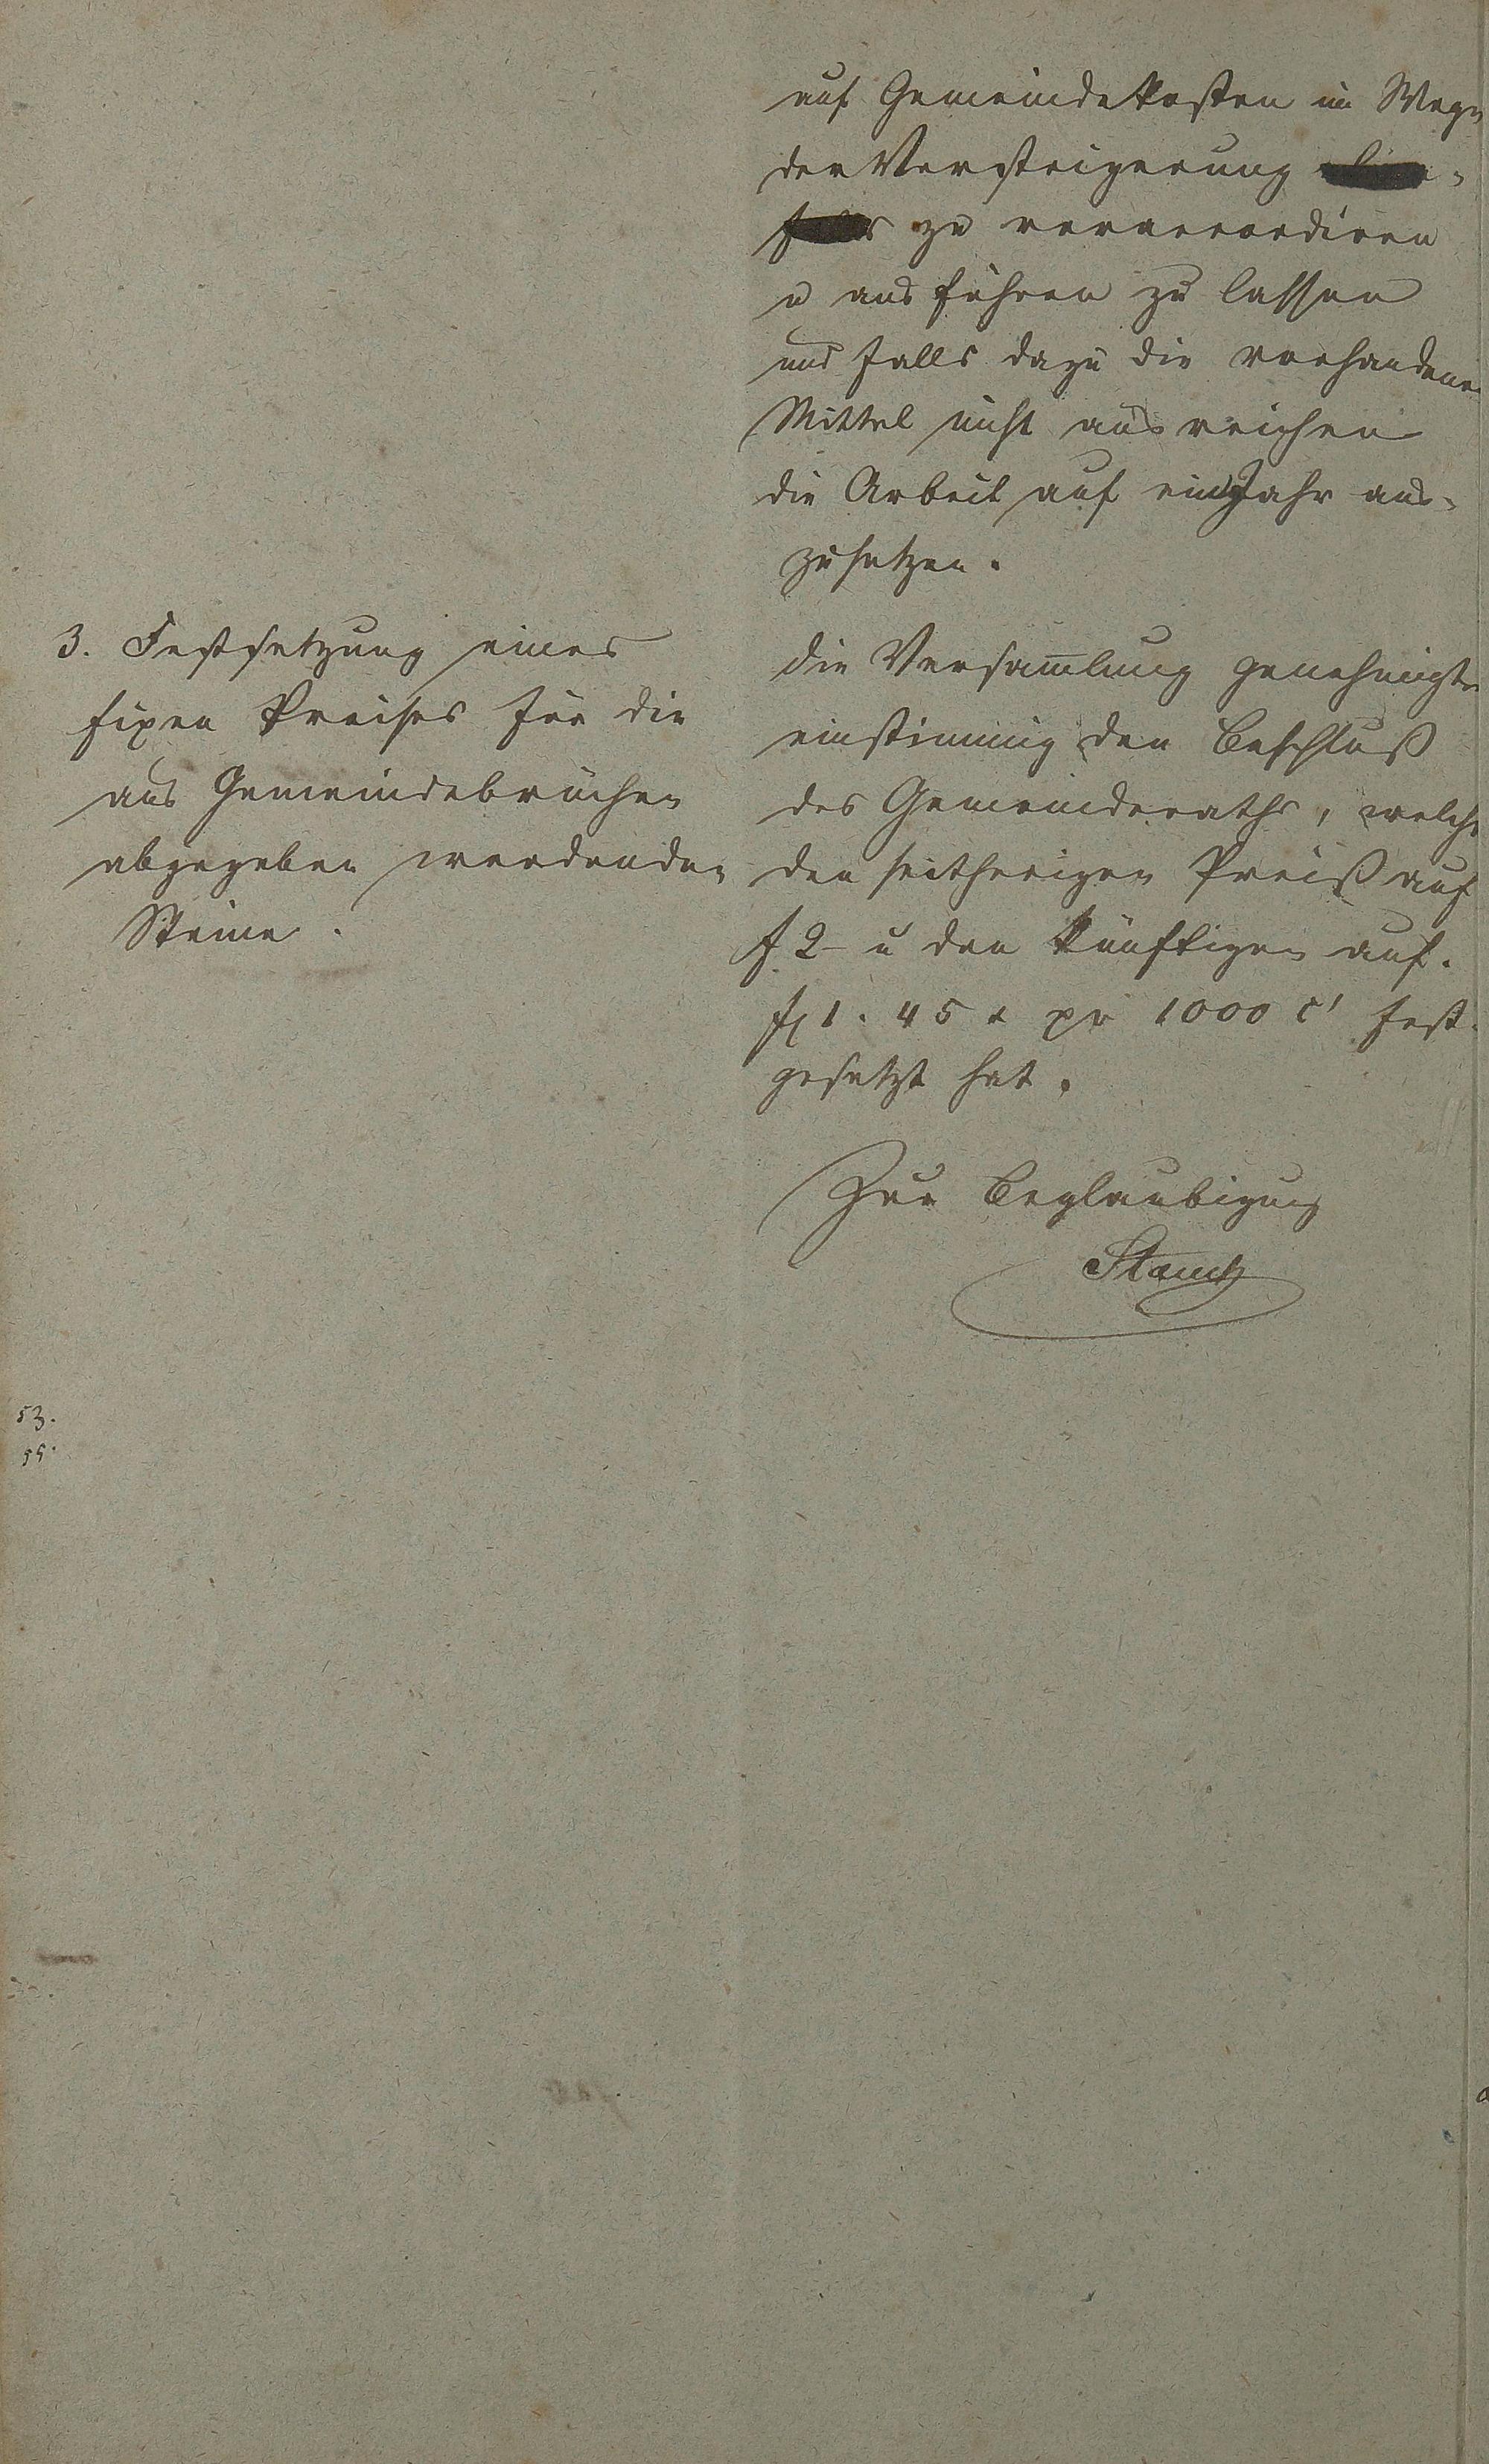 auf Gemeindekosten im Wege
der Versteigerung
zu veraccordiren
u ausführen zu lassen
und falls dazu die vorhandenen
Mittel nicht ausreichen
die Arbeit auf ein Jahr aus-
zusetzen.
3. Festsetzung eines
fixen Preises für die
aus Gemeindebrüchen
abgegeben werdenden
Steine.
die Versam̄lung genehmigte
einstimmig den Beschluß
des Gemeinderaths, welche
den seitherigen Preiß auf
f 2 - u den künftigen auf.
fl 1. 45 x pr 1000 c' fest-
gesetzt hat.
Zur Beglaubigung
53.
55.